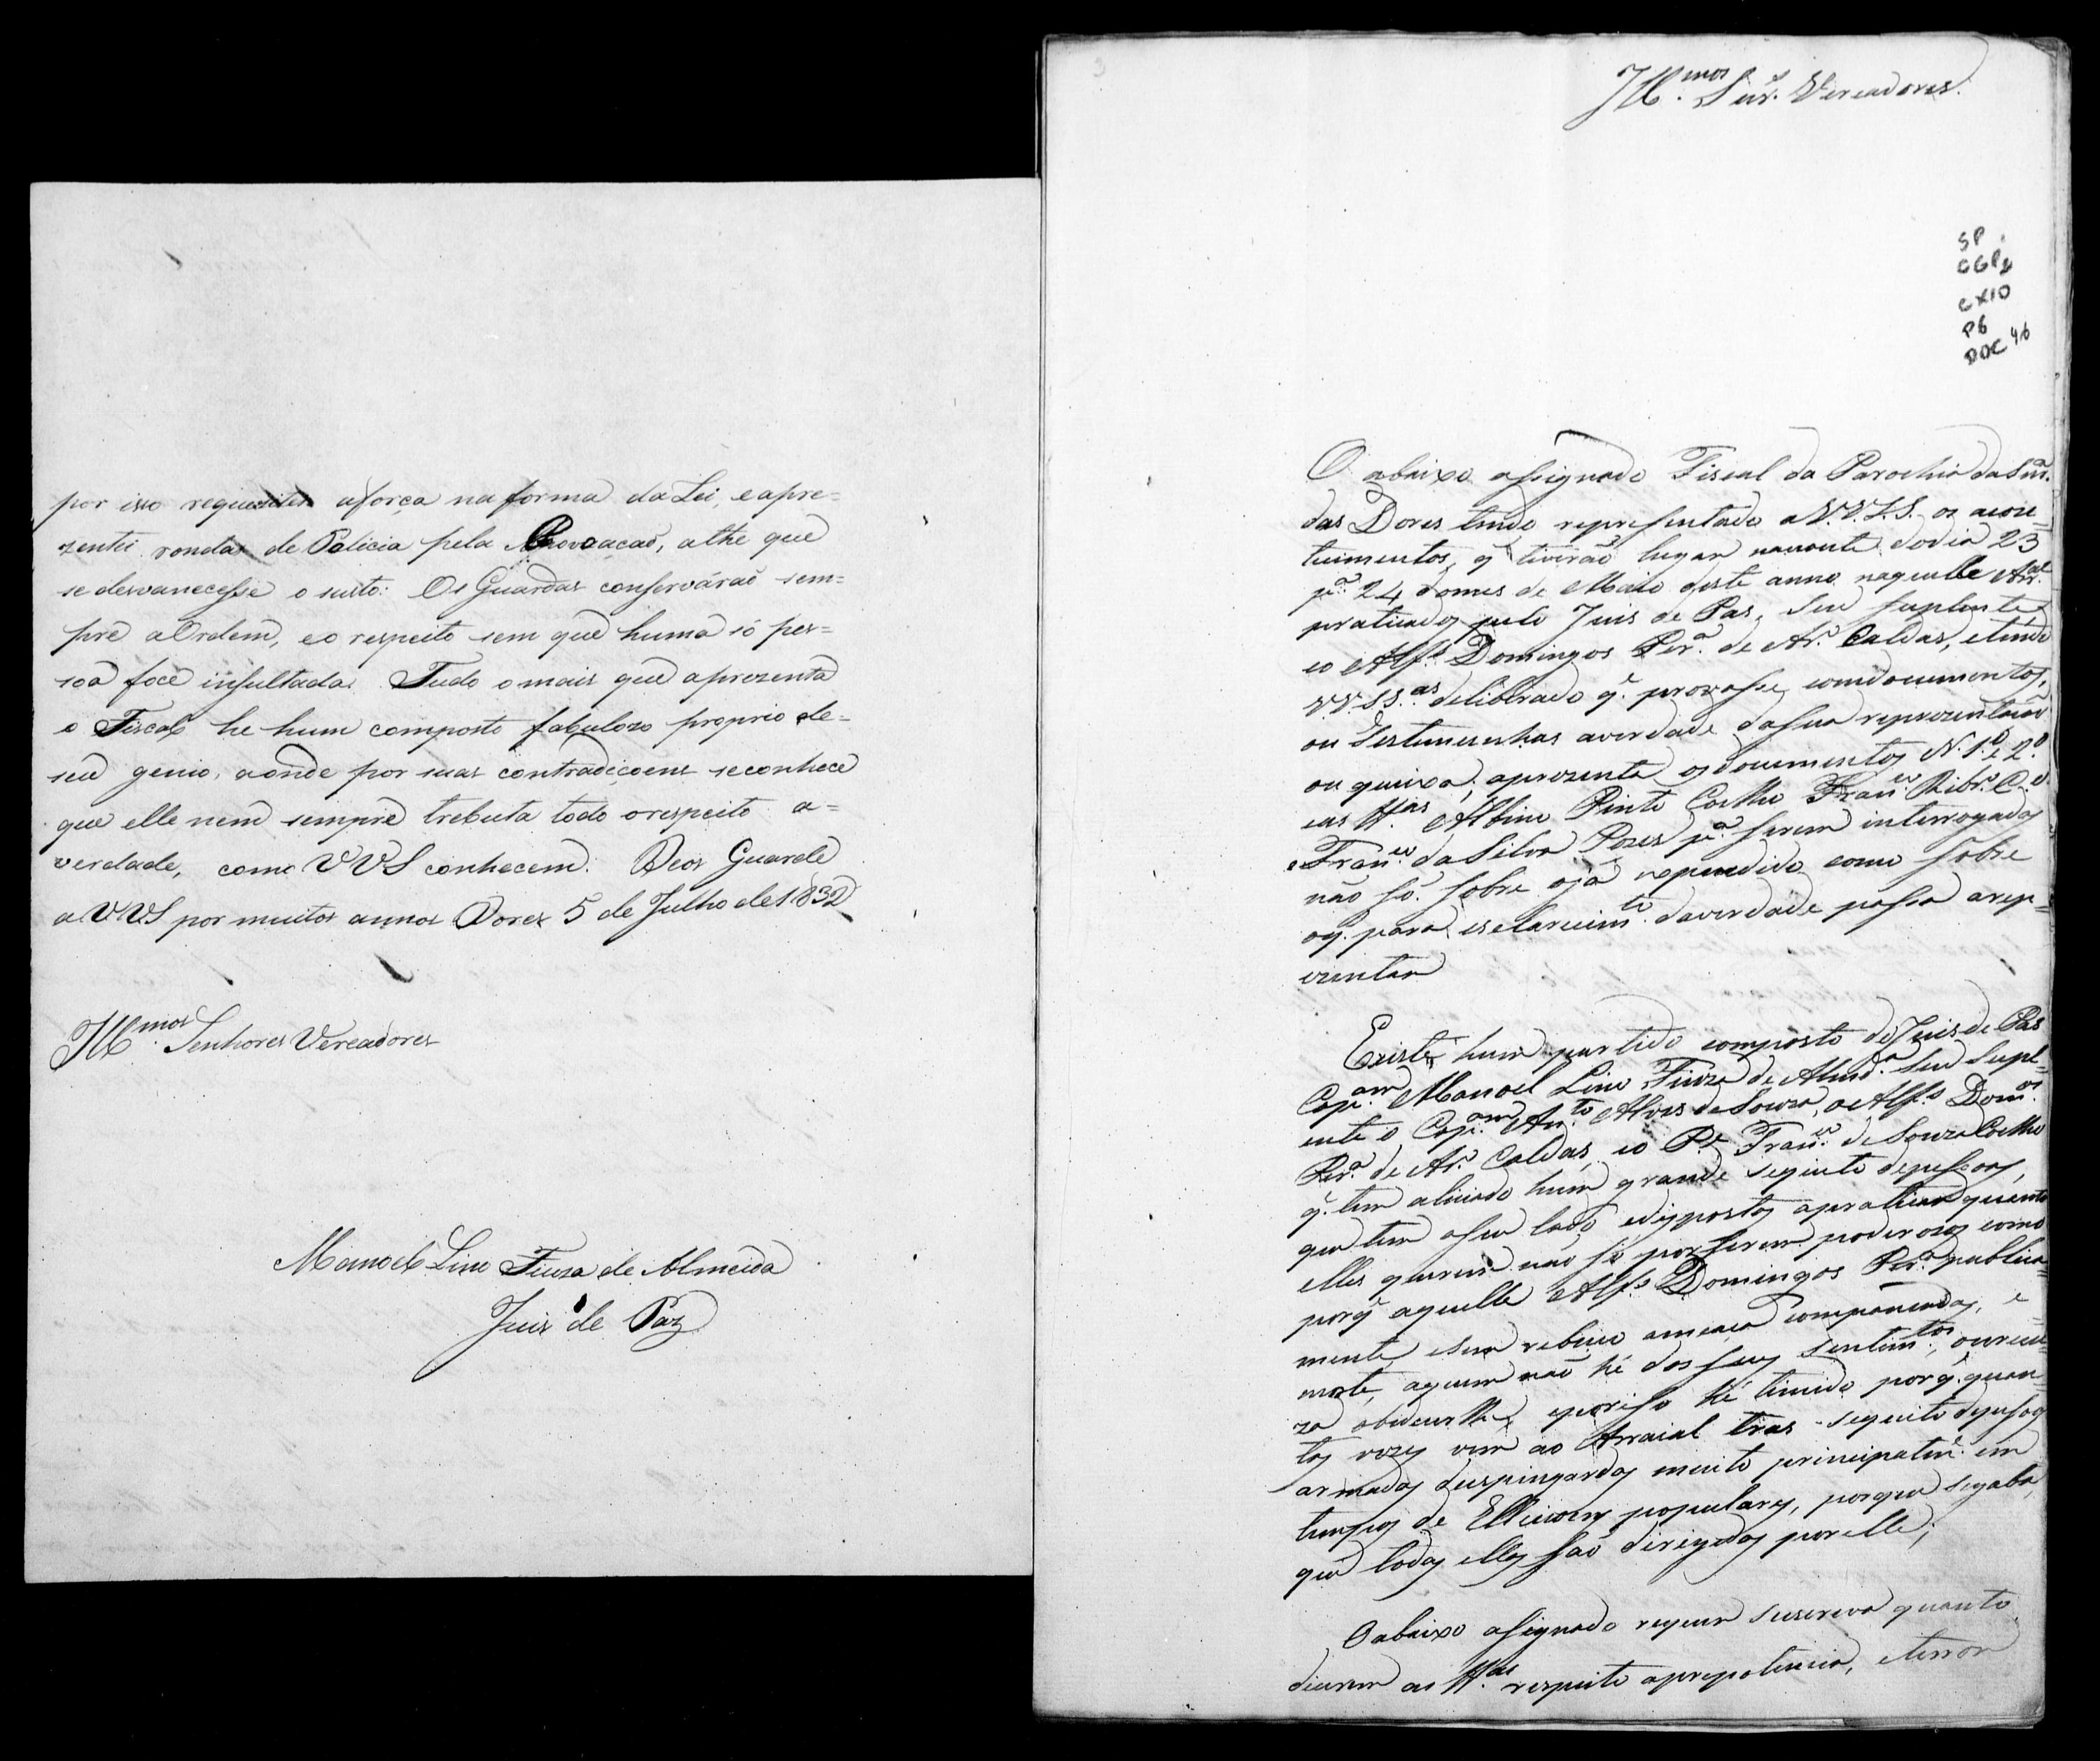 por isso requizitei aforça na forma da Lei, e apre=
zentei rondas de Policia pela Povoação, athe que
se desvanecesse o susto: Os Guardas conservárão sem=
pre a Ordem, e o respeito sem que huma só pes=
soa foce insultada. Tudo o mais que aprezenta
o Fiscal he hum composto fabulozo proprio de=
seu genio, aonde por suas contradiçoens se conhece
que elle nem sempre trebuta todo o respeito a=
verdade, como VVS conhecem. Deos Guarde
a VVS por muitos annos Dores 5 de Julho de 1832
Ill.mos Senhores Vereadores
Manoel Lino Fiuza de Almeida
Juis de Paz
3
Ill.mos Snr.s Vereadores.
SP
CX10
P6
DOC 46
O abaixo assignado Fiscal da Parochia da Snr.a
das Dores tendo representado a V.V.S.S. os acon-
tecimentos q' tiverão lugar na noute do dia 23
p.a 24 domes de Maio deste anno naquelle Arr.al
praticados pelo Juis de Pas, seu suplente,
e o Alf.s Domingos Per.a de Ar.o Caldas, e tendo
VV.SS.as deliberado q'. provasse comdocumentos,
ou Testemunhas averdade dasua reprezentação
ou queixa, aprezenta os documentos N. 1.o, 2.o
eas tt.as Albino Pinto Coelho Fran.co Ribr.o
e Fran.co da Silva p.a serem interrogados
não só sobre ojá expendido como sobre
oq. para esclarecim.to daverdade passa arep=
rezentar
Existe hum partido composto do Juis de Pas
Cap.am Manoel Lino Fiuza de Almd.a seu Supl=
ente o Cap.am An.to Alves de Souza, o Alf.s Dom.os
Per.a de Ar.o Caldas, e o P.e Fran.co de Souza Coelho
q. tem aliciado hum grande sequito depessoas,
que tem aseu lado, edispostos apraticar quanto
elles querem não só por serem poderosos como
porq' aquelle Alf.s Domingos Per.a publica=
mente, e sem rebuço ameaça com pancadas, e
morte, aquem não hé dos seus sentim.tos, ou recu-
za obedecerlhe, eporisso hé timido porq'. quan-
tas vezes vem ao Arraial tras sequito depessoas
armadas deespingardas muito principalm.e em
tempos de Elleiçoens populares, porque segaba,
que todas ellas são dirigidas por elle;
O abaixo assignado requer seescreva quanto
dicerem as tt.as respeito aprepotencia, e terror